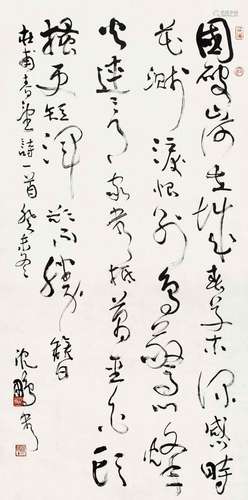 國破山河在城春草木深感時
花濺淚恨別鳥驚心烽
火連三月家書抵萬金白頭
搔更短渾欲不勝簪
杜甫春望詩一首癸未冬
沈鵬書